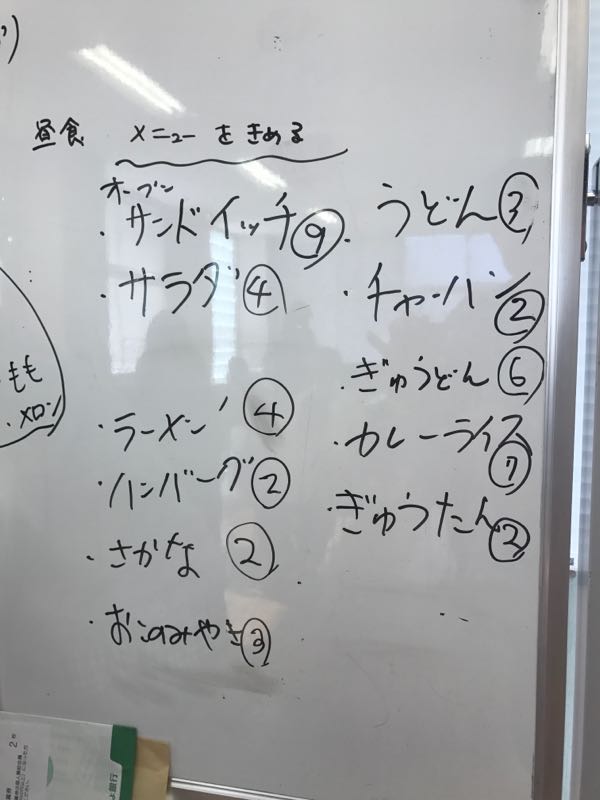 昼食 メニューをきめる
オープン
・サンドイッチ⑨
・サラダ④
・ラーメン④
・ハンバーグ②
・さかな②
・おこのみやき③
・うどん③
・チャーハン②
・ぎゅうどん⑥
・カレーライス⑦
・ぎゅうたん②
もも
・メロン
2枚